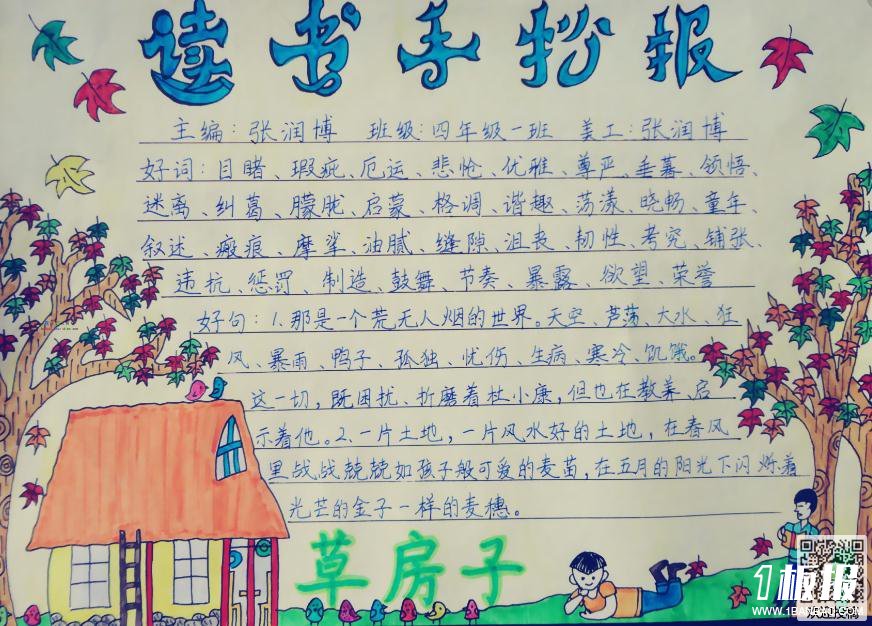 读书手抄报
主编：张润博 班级：四年级一班 美工：张润博
好词：目睹、瑕疵、厄运、悲怆、优雅、尊严、垂暮、领悟、
迷离、纠葛、朦胧、启蒙、格调、谐趣、荡漾、晓畅、童年、
叙述、瘢痕、摩挲、油腻、缝隙、沮丧、韧性、考究、铺张、
违抗、惩罚、制造、鼓舞、节奏、暴露、欲望、荣誉
好句：1.那是一个荒无人烟的世界。天空、芦荡、大水、狂
风、暴雨、鸭子、孤独、忧伤、生病、寒冷、饥饿。
这一切，既困扰、折磨着杜小康，但也在教养、启
示着他。2.一片土地，一片风水好的土地，在春风
里战战兢兢如孩子般可爱的麦苗，在五月的阳光下闪烁着
光芒的金子一样的麦穗。
草房子
1板报
WWW.1BANBAO.COM